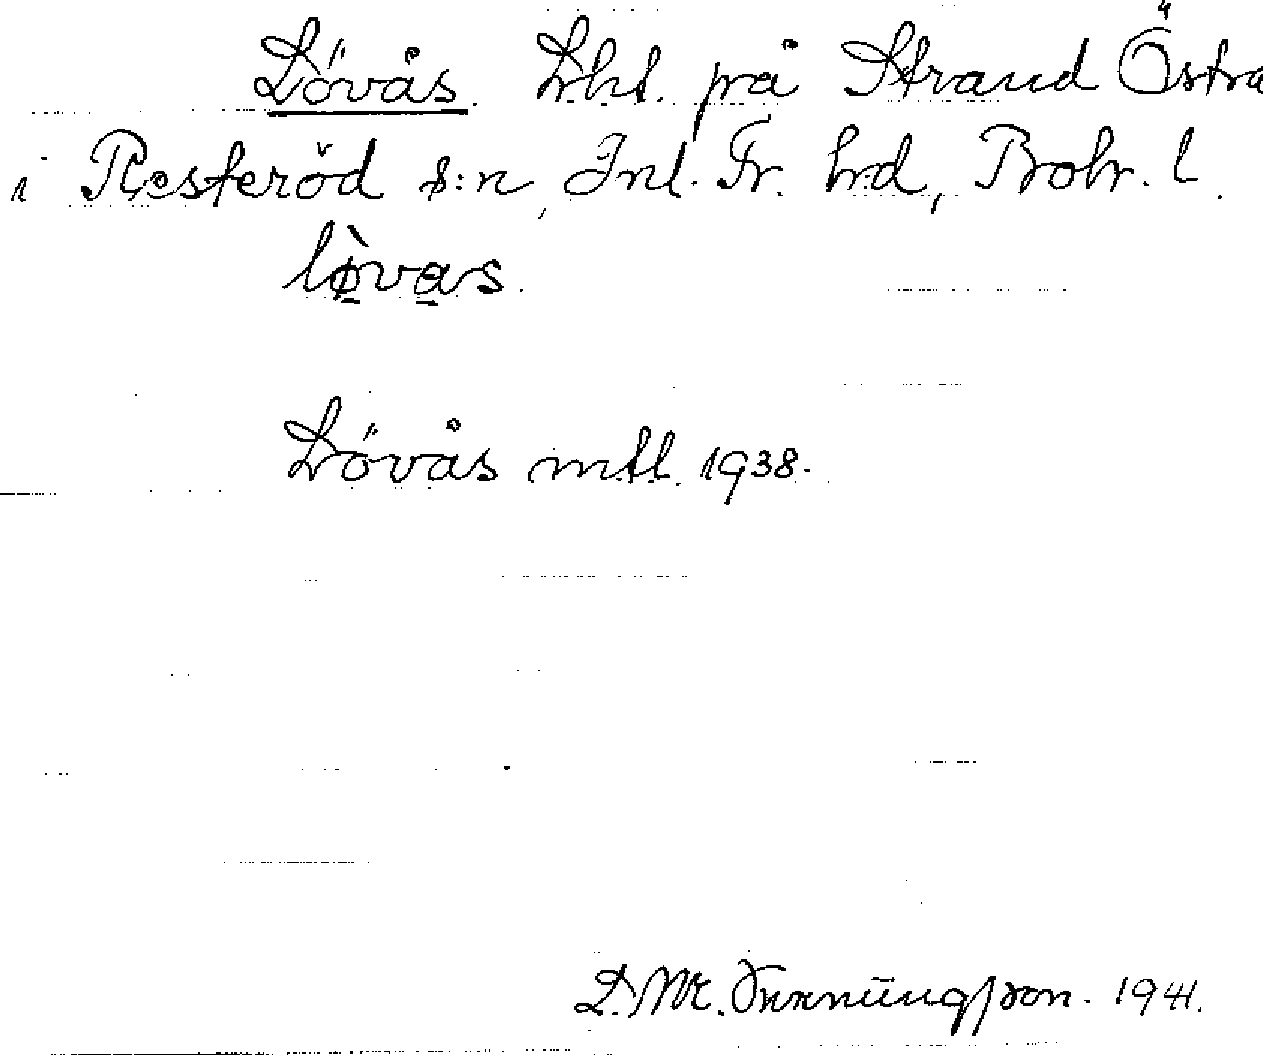 Lövås. Lht. på Strand Östra
i Resteröd s:n, Inl. Fr. hd, Boh. l.
lòvas.
Lövås mtl. 1938.
1941.